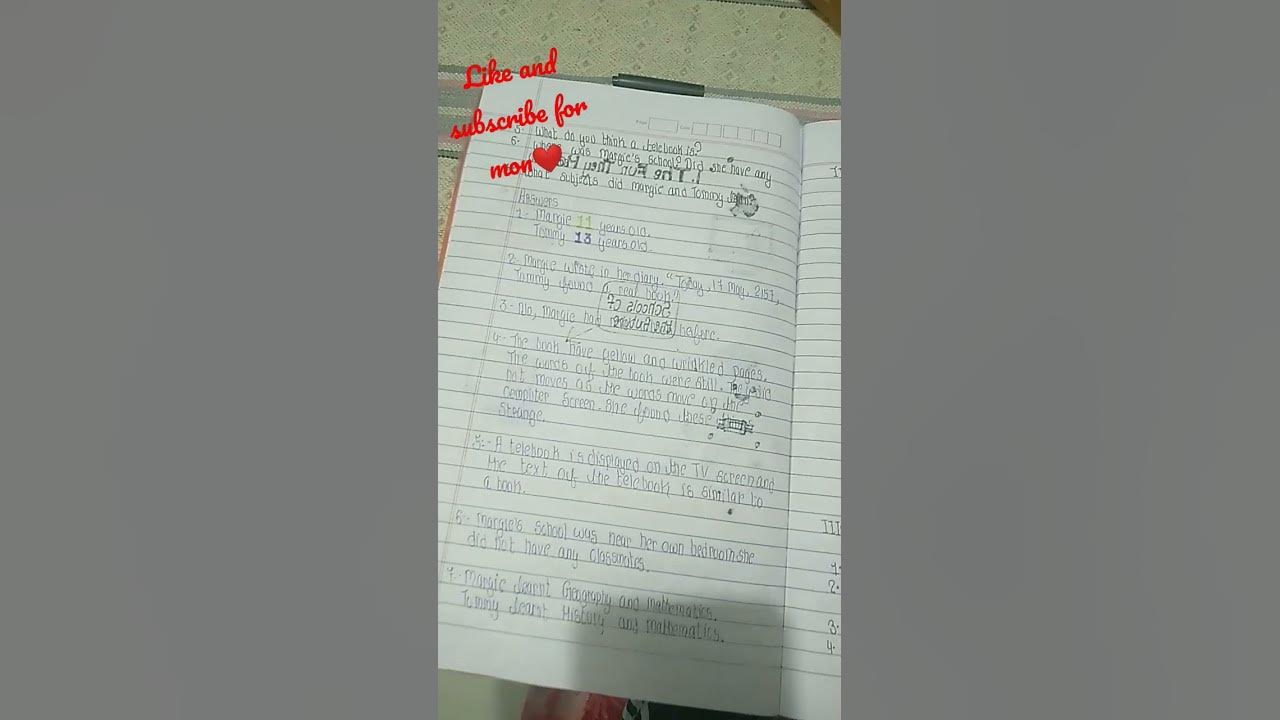 Like and
subscribe for
mor❤️
5- What do you think a telebook is?
6. Where was Margie's school? Did she have any
What subjects did margie and Tommy learn?
Answers
1- Margie 11 years old.
Tommy 13 years old.
2- Margie wrote in her diary. "Today, 17 May, 2157,
Tommy found a real book"
3- No, Margie had before.
4- The book have yellow and wrinkled pages.
The words of the book were still. The did
not moves as the words move on the
computer screen. she found these
strange.
5:- A telebook is displayed on the TV screen and
the text of the telebook is similar to
a book.
6:- Margie's school was near her own bedroom she
did not have any classmates.
7- Margie learnt Geography and mathematics.
Tommy learnt History and mathematics.
III
1.
2.
3.
4.